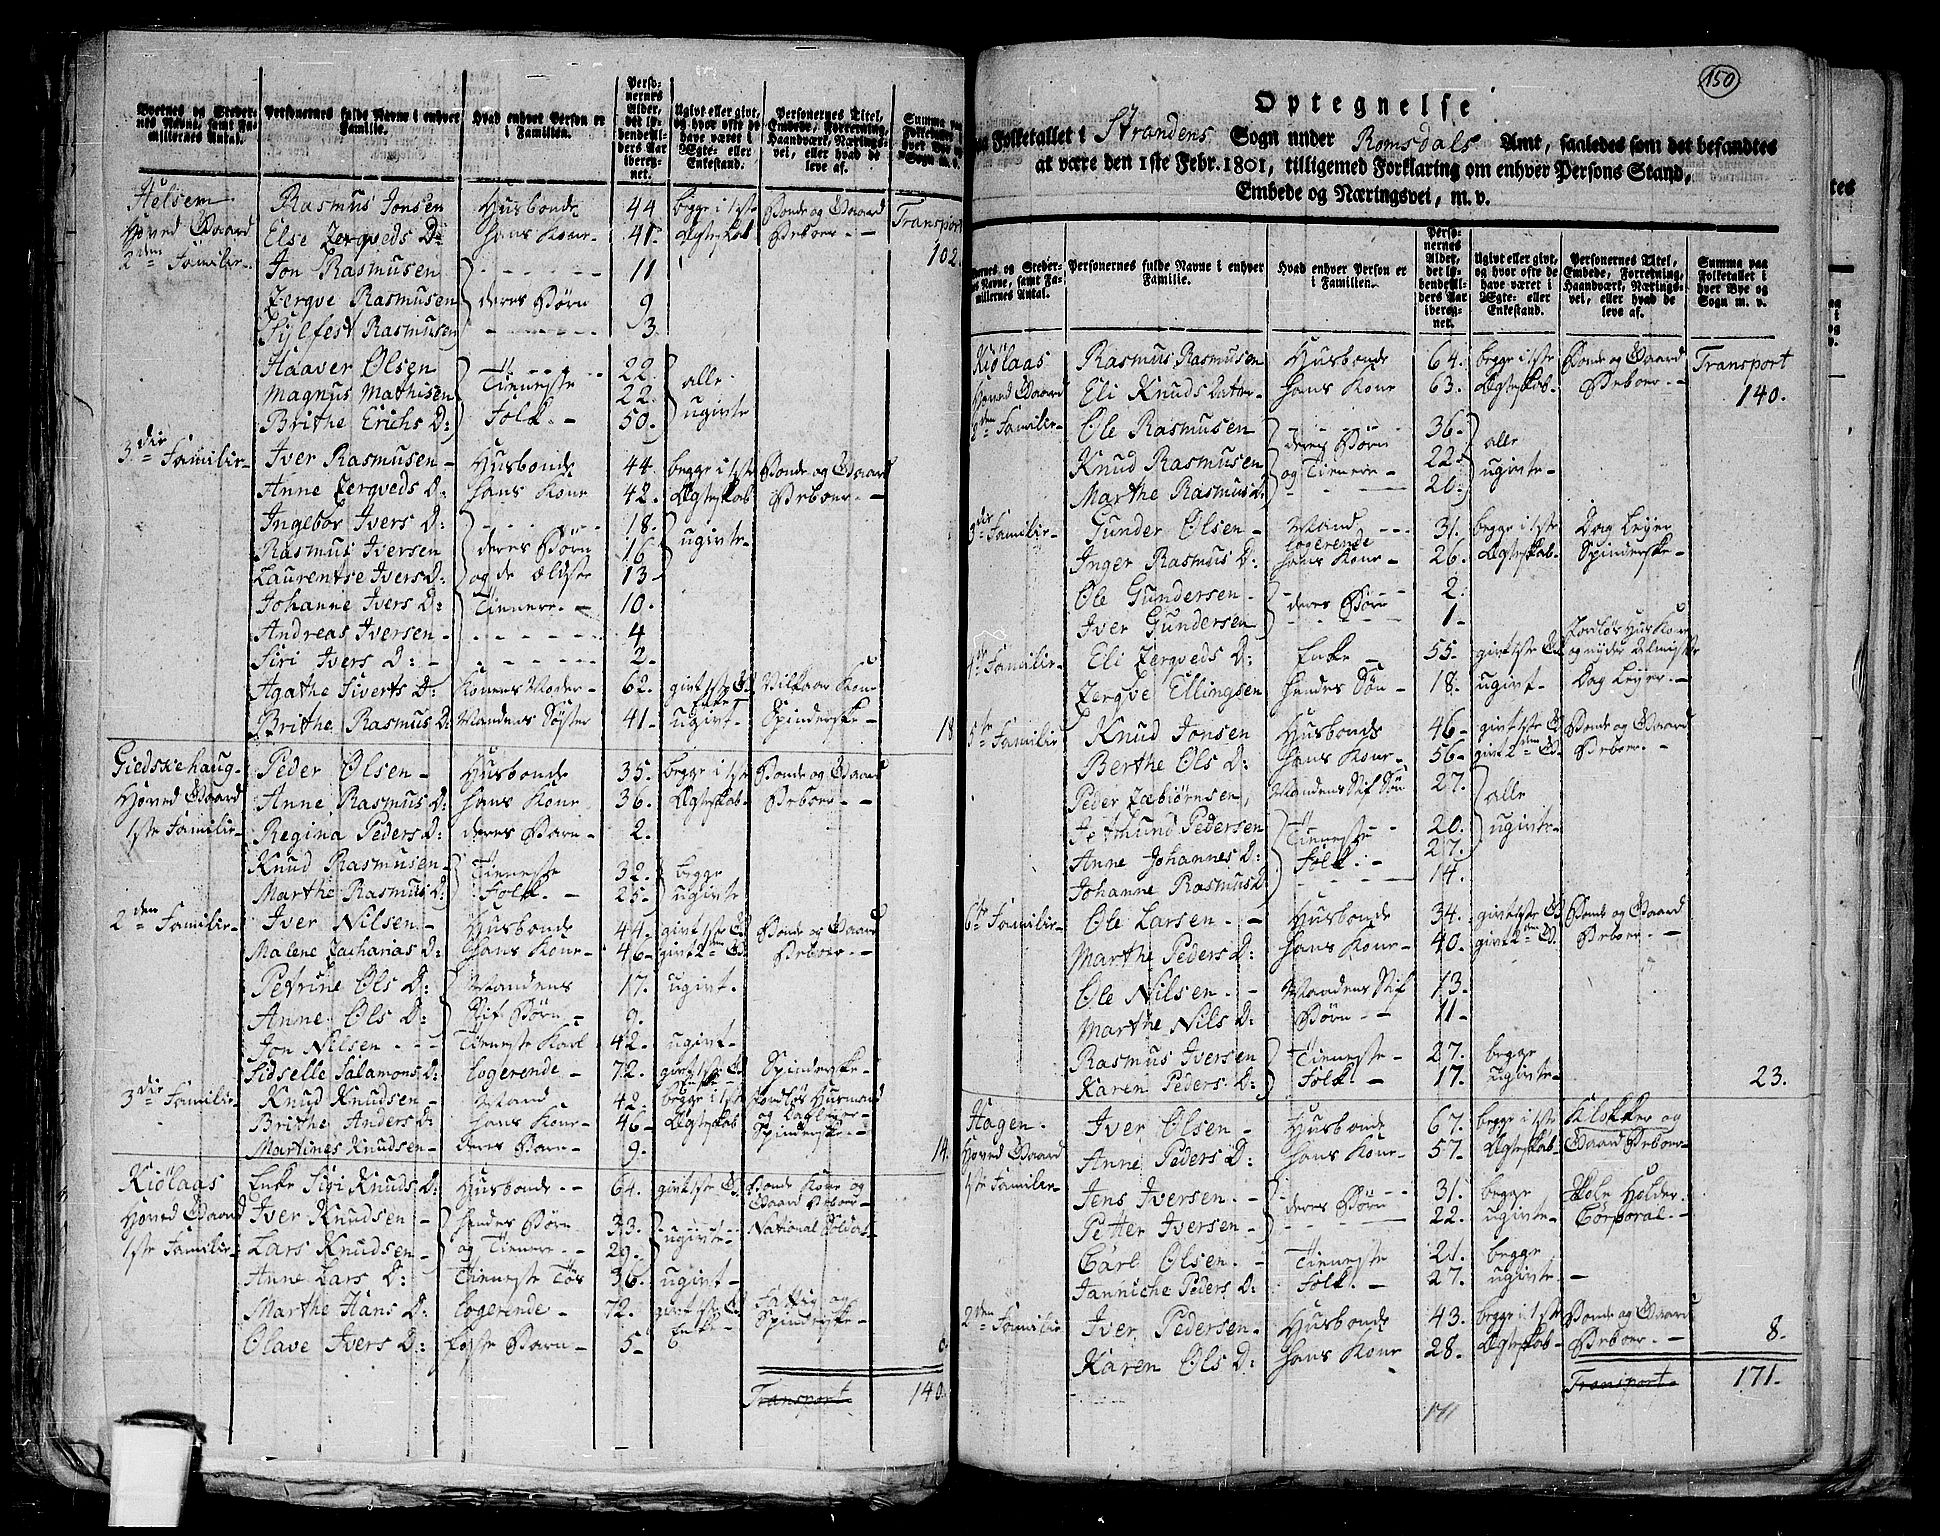 Byernes og Stedernes Navne, samt Familiernes Antal. | Personernes fulde Navne i enhver Familie. | Hvad enhver Person er i Familien. | Personernes Alder, det løbendeAlders Aar iberegnet. | Ugivt eller givt, og hvor ofte de have været i Ægte- eller Enkestand. | Personernes Titel, Embede, Forretning, Haandværk, Næringsvei, eller hvad de leve af. | Summa paa Folketallet i hver Bye og Sogn m. v.
Helsem | Rasmus Jonsen | Husbonde | 44 | begge i 1ste | Bonde og Gaard | Transport
Hoved Gaard | Else Zergveds D: | hans Kone | 41 | Ægteskab | Beboer | 102.
2den Familie | Jon Rasmusen | 11
Zergve Rasmusen | deres Børn | 9
Sylfest Rasmusen | 3.
Haaver Olsen | 22. | alle
Magnus Mathisen | Tieneste | 22.
Brithe Erichs D: | Folk | 50. | ugivte
3die Familie | Iver Rasmusen | Husbonde | 44. | begge i 1ste | Bonde og Gaard
Anne Zergveds D: | hans Kone | 42. | Ægteskab | Beboer
Ingebor Ivers D: | 18.
Rasmus Iversen | deres Børn | 16 | ugivte
Laurentse Ivers D: | og de Ældste | 13
Johanne Ivers D: | Tienere | 10.
Andreas Iversen | 4
Siri Ivers D: | 2.
Agathe Siverts D: | Konens Moder | 62. | givt 1ste G. Enke | Vilkaar Kone
Brithe Rasmus D: | Mandens Søster | 41. | ugivt | Spinderske | 18
Giedskehaug | Peder Olsen | Husbonde | 35. | begge i 1ste | Bonde og Gaard
Hoved Gaard | Anne Rasmus D: | hans Kone | 36. | Ægteskab | Beboer
1ste Familie | Regina Peders D: | deres Barn | 2.
Knud Rasmusen | Tieneste | 32. | begge
Marthe Rasmus D: | Folk | 25. | ugivte
2den Familie | Iver Nilsen | Husbonde | 44. | givt 1ste G. | Bonde og Gaard
Malene Zacharias D: | Hans Kone | 46 | givt 2den G. | Beboer
Petrine Ols D: | Mandens | 17. | ugivt.
Anne Ols D: | Stif Børn | 9.
Jon Nilsen | Tieneste Karl | 42. | ugivt
Sidselle Salamons D: | Logerende | 72. | givt 1ste G. Enke | Spinderske
3die Familie | Knud Knudsen | Mand | 42 | begge i 1ste | Jordløs Husmand
Brithe Anders D: | hans Kone | 46 | Ægteskab | og Dagleyer
Martines Knudsen | deres Barn | 9. | Spinderske | 14.
Kiølaas | Enke Siri Knuds D: | Husbonde | 64. | givt 1ste G. | Bonde Kone og
Hoved Gaard | Iver Knudsen | hendes Børn | 33. | Gaard Beboer
1ste Familie | Lars Knudsen | og Tienere | 29. | ugivte | National Soldat
Anne Lars D: | Tieneste Tøs | 36. | ugivt
Marthe Hans D: | Logerende | 72. | givt 1ste G. Enke | Fattig og Spinderske
Olave Ivers D: | Løste Barn | 5 | 6
Transport | 140.
150
Optegnelse
paa Folketallet i Strandens Sogn under Romsdals Amt, saaledes som det befandtes
at være den 1ste Febr. 1801, tilligemed Forklaring om enhver Persons Stand,
Embede og Næringsvei, m. v.
Byernes og Stedernes Navne, samt Familiernes Antal. | Personernes fulde Navne i enhver Familie. | Hvad enhver Person er i Familien. | Personernes Alder, det løbendeAlders Aar iberegnet. | Ugivt eller givt, og hvor ofte de have været i Ægte- eller Enkestand. | Personernes Titel, Embede, Forretning, Haandværk, Næringsvei, eller hvad de leve af. | Summa paa Folketallet i hver Bye og Sogn m. v.
Kiølaas | Rasmus Rasmusen | Husbonde | 64. | begge i 1ste | Bonde og Gaard | Transport
Hoved Gaard | Eli Knuds Datter | hans Kone | 63. | Ægteskab | Beboer | 140.
2den Familie | Ole Rasmusen | deres Børn | 36. | alle
Knud Rasmusen | og Tienere | 22. | ugivte
Marthe Rasmus D: | 20.
3die Familie | Gunder Olsen | Mand Logerende | 31. | begge i 1ste | Dag Leyer
Inger Rasmus D: | hans Kone | 26. | Ægteskab | Spinderske
Ole Gundersen | deres Børn | 2.
Iver Gundersen | 1.
4de Familie | Eli Zergveds D: | Enke | 55. | givt 1ste G. | Jordløs Huskone og nyder Almisse
Zergve Ellingsen | hendes Søn | 18. | ugivt | Dag Leyer
5te Familie | Knud Jonsen | Husbonde | 46 | givt 1ste G. | Bonde og Gaard
Berthe Ols D: | hans Kone | 56 | givt 2den G. | Beboer
Peder Zebiørnsen | Mandens Stif Søn | 27. | alle
Pedersen | Tieneste | 20. | ugivte
Anne Johannes D: | Folk | 27.
Johanne Rasmus D: | 14.
6te Familie | Ole Larsen | Husbonde | 34. | givt 1ste G. | Bonde og Gaard
Marthe Peders D: | hans Kone | 40. | givt 2den G. | Beboer
Ole Nilsen | Mandens Stif | 13.
Marthe Nils D: | Børn | 11
Rasmus Iversen | Tieneste | 27. | begge
Karen Peders D: | Folk | 17. | ugivte | 23.
Hagen | Iver Olsen | Husbonde | 67. | begge i 1ste | Klokker og
Hoved Gaard | Anne Peders D: | hans Kone | 57. | Ægteskab | Gaard Beboer
1ste Familie | Jens Iversen | deres Børn | 31. | begge | Skole Holder
Petter Iversen | 22. | ugivte | Corporal
Carl Olsen | Tieneste | 21. | begge
Janniche Peders D: | Folk | 27. | ugivte
2den Familie | Iver Pedersen | Husbonde | 43. | begge i 1ste | Bonde og Gaard
Karen Ols D: | hans Kone | 28. | Ægteskab | Beboer | 8.
Transport | 171.
171